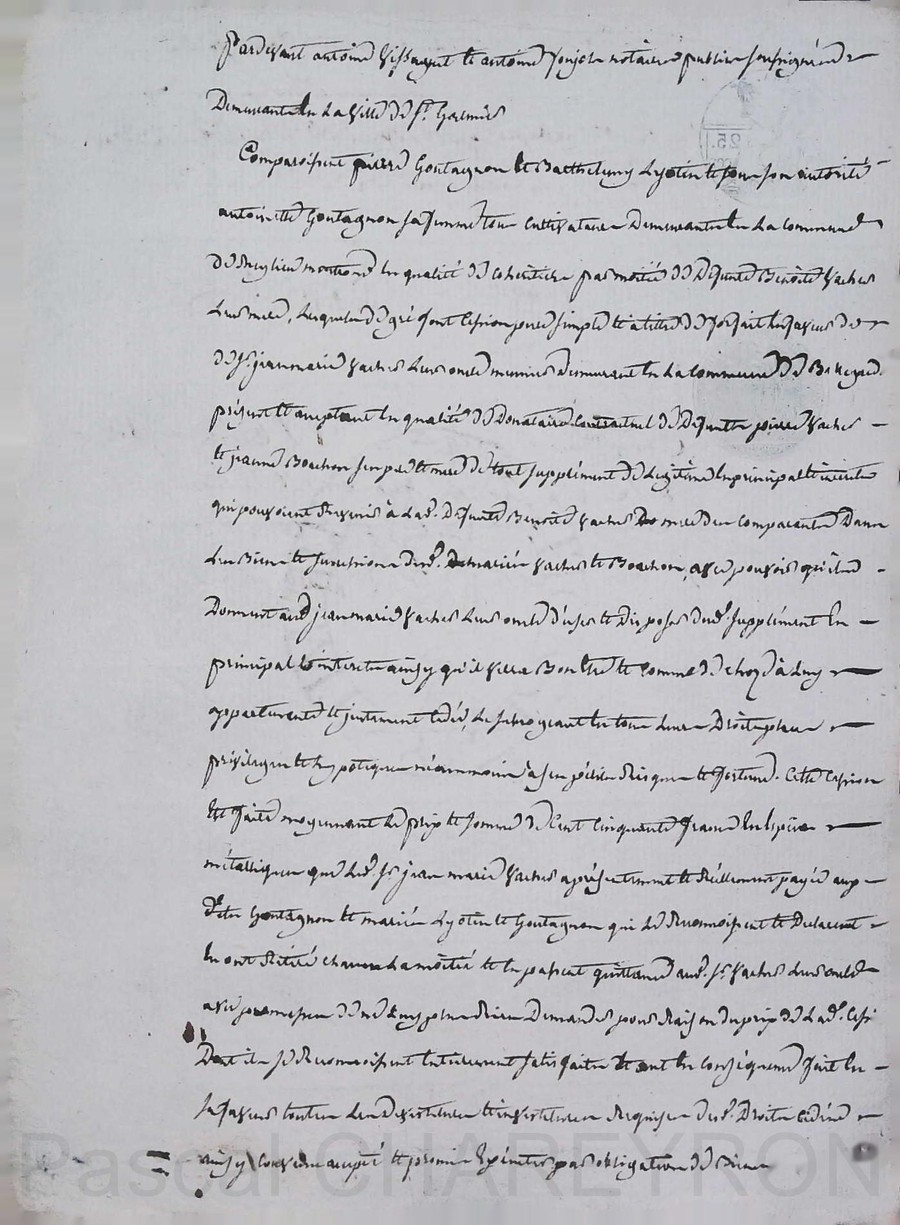 Pardevant antoine Vissaguet et antoine Jonjon notaires publics soussignés
Demeurants en La Ville de St. Galmier
Comparoissent pierre Goutagnon et Barthelemy Lyotin et sous son autorité
antoinette Goutagnon sa femme tous cultivateurs Demeurants en La Commune
de en qualité de cohéritiers par moitié de Defunte Benoite Vacher
Leur mere, Lesquels de gré font Cession pure simple et a titre de forfait en faveur de
de Sr. jean marie Vacher Leur oncle Demeurant en La Commune de
présent et acceptant en qualité de Donataire Contractuel de Defunts pierre Vacher
et jeanne Bouchon ses pere et mere de tout supplément de Légitime en principal et interets
qui pouvoient Revenir à Lad. Defunte Benoite Vacher mere des Comparants Dans
Les Biens et successions desd. mariés Vacher et Bouchon, avec pouvoir qu'ils
Donnent aud. jean marie Vacher Leur oncle d'user et Disposer dud. supplément en
principal & interets ainsy qu'il Verra Bon être et Comme de chose à Luy
appartenante et justement Cédée, Le subrogeant en tous Leurs Droits places
privileges et hypoteques néanmoins à ses périls Risques et fortune. Cette Cession
Est faite moyennant Le prix et somme de Cent Cinquante francs En Espèces
métalliques que Led. Sr. jean marie Vacher a présentement et Réellement payée aux
dits Goutagnon et mariés Lyotin et Goutagnon qui Le Reconnoissent et Declarent
en ont Retiré chacun La moitié et en passent quittance aud. Sr. Vacher Leur oncle
avec promesse de ne Luy plus Rien Demander pour Raison du prix de Lad. Cession
Dont ils se Reconnoissent Entierement satisfaits et ont en Conséquence fait en
sa faveur toutes Les Devestitures et investitures Requises desd. Droits cédés
ainsy Convenu accepté et promis Exécuter par obligation de Biens
Pascal CHAREYRON